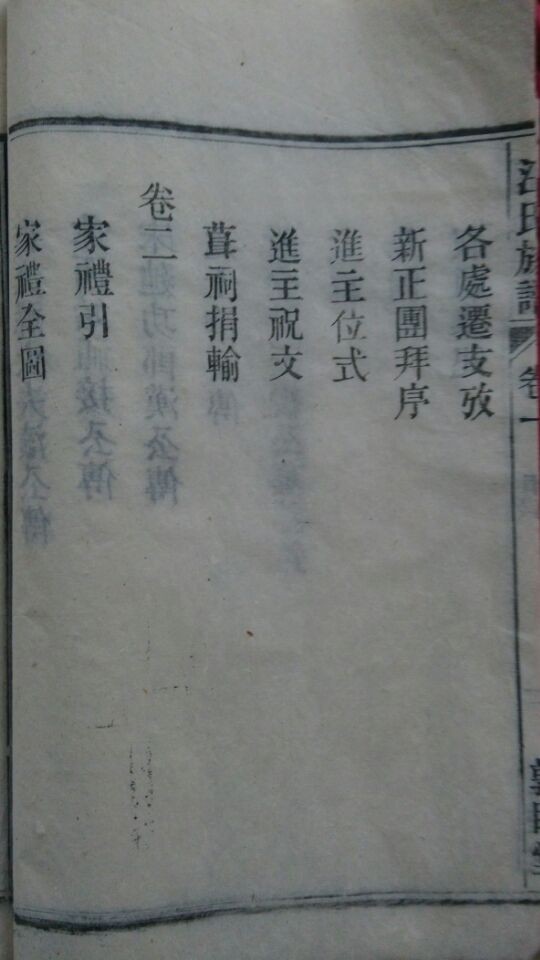 氏族譜
卷一
各處遷支攷
新正團拜序
進主位式
進主祝文
葺祠捐輸
卷二
家禮引
家禮全圖